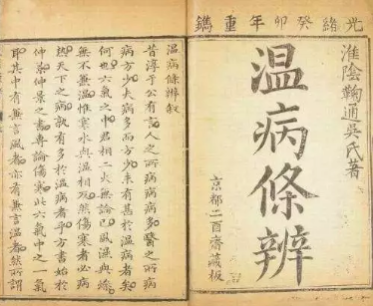 光緒癸卯年重鐫
淮陰鞠通吳氏著
溫病條辨
京都二酉齋藏板
溫病條辨敘
昔淳于公有言人之所病病病多醫之所病
病方少夫病多而方少未有甚於溫病者矣
何也六氣之中君相二火無論已風濕與燥
無不兼溫惟寒水與溫相反然傷寒者必病
熱天下之病孰有多於溫病者乎方書始於
仲景仲景之書專論傷寒此六氣中之一氣
耳其中有兼言風者亦有兼言溫者然所謂